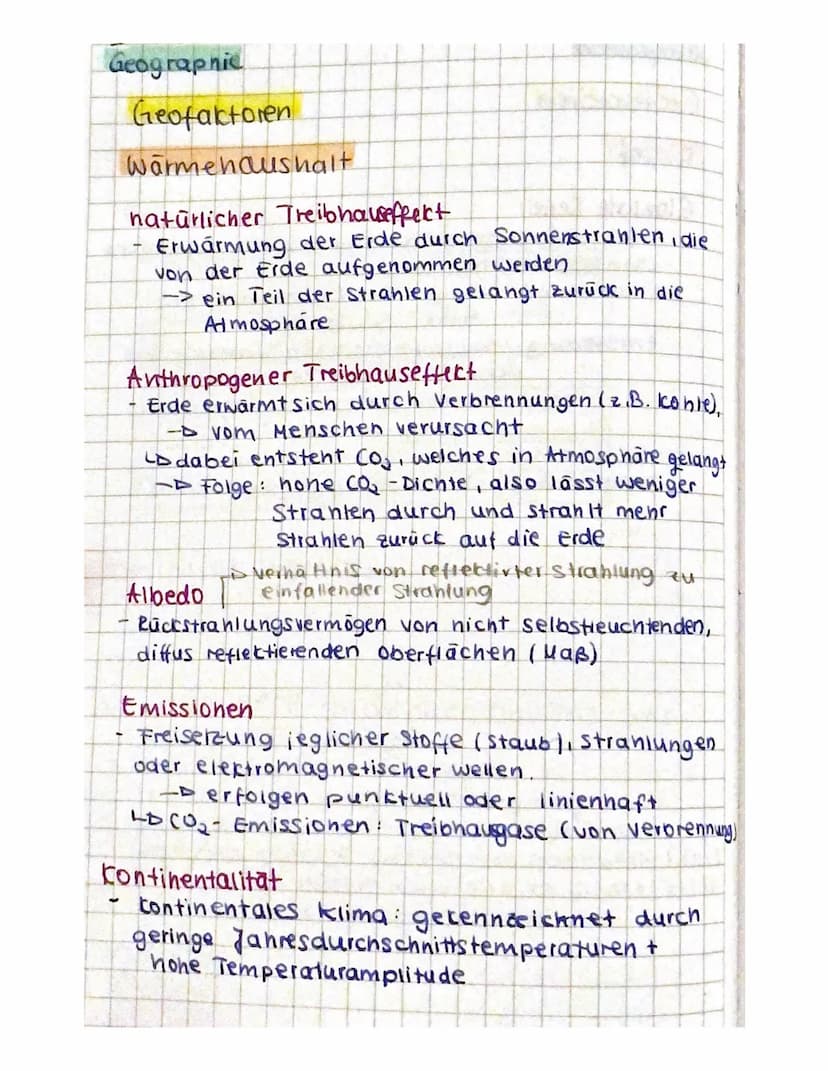 Geographie
Geofaktoren
Wärmehaushalt
natürlicher Treibhauseffekt
- Erwärmung der Erde durch Sonnenstrahlen, die
von der Erde aufgenommen werden
-> ein Teil der Strahlen gelangt zurück in die
Atmosphäre
Anthropogener Treibhauseffekt
- Erde erwärmt sich durch Verbrennungen (z.B. Kohle),
-> vom Menschen verursacht
↳ dabei entsteht CO₂, welches in Atmosphäre gelangt
-> Folge: hohe CO₂-Dichte, also lässt weniger
Strahlen durch und strahlt mehr
Strahlen zurück auf die Erde
-> Verhältnis von reflektierter Strahlung zu
einfallender Strahlung
Albedo
- Rückstrahlungsvermögen von nicht selbstleuchtenden,
diffus reflektierenden Oberflächen (Maß)
Emissionen
- Freisetzung jeglicher Stoffe (Staub), Strahlungen
oder elektromagnetischer Wellen.
-> erfolgen punktuell oder linienhaft
↳ CO₂-Emissionen: Treibhausgase (von Verbrennung)
Kontinentalität
- kontinentales Klima: gekennzeichnet durch
geringe Jahresdurchschnittstemperaturen +
hohe Temperaturamplitude